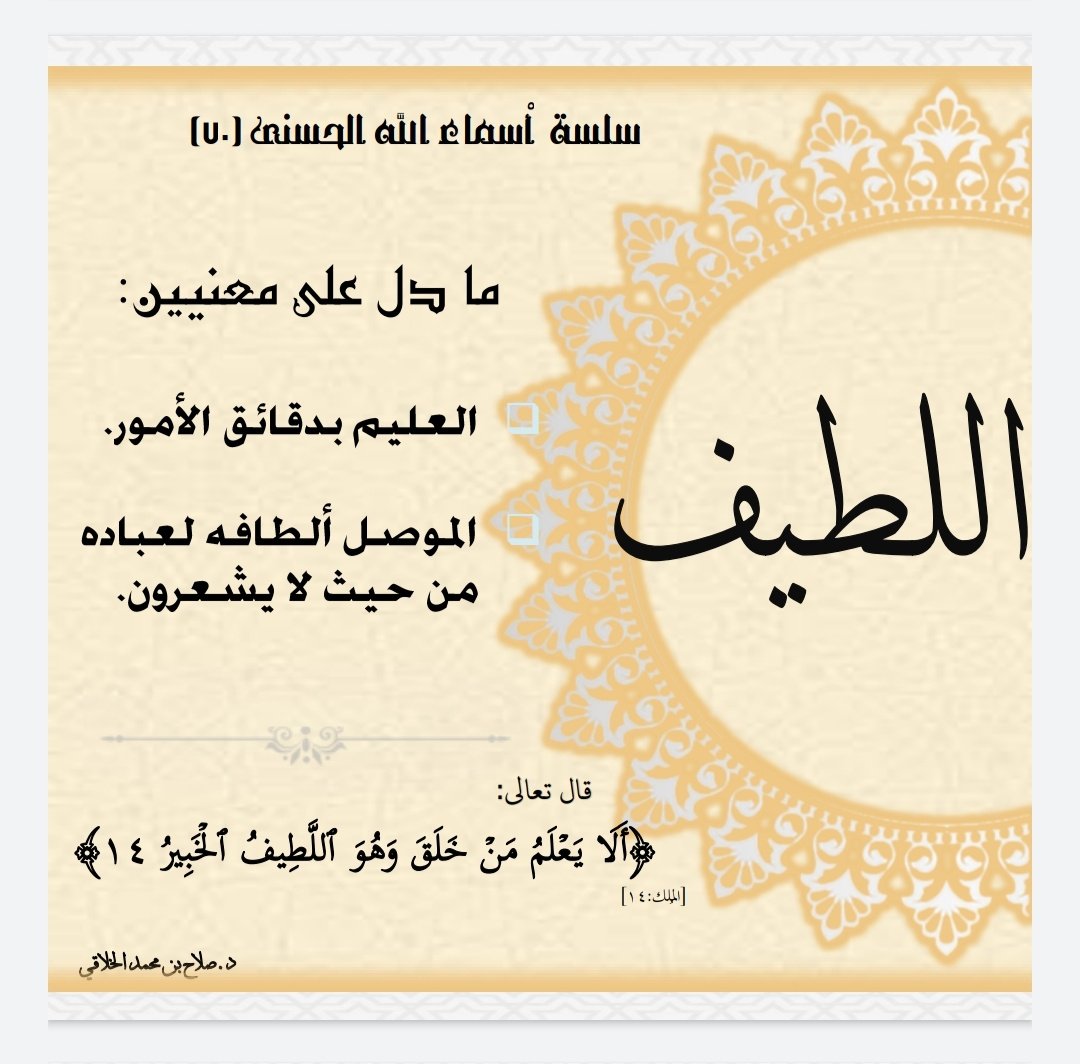 سلسة أسماء الله الحسنى (٧٠)
اللطيف
ما دل على معنيين:
العليم بدقائق الأمور.
الموصل ألطافه لعباده
من حيث لا يشعرون.
قال تعالى:
﴿أَلَا يَعۡلَمُ مَنۡ خَلَقَ وَهُوَ ٱللَّطِيفُ ٱلۡخَبِيرُ ١٤﴾
[الملك:١٤]
د.صلاح بن محمد الخلاقي